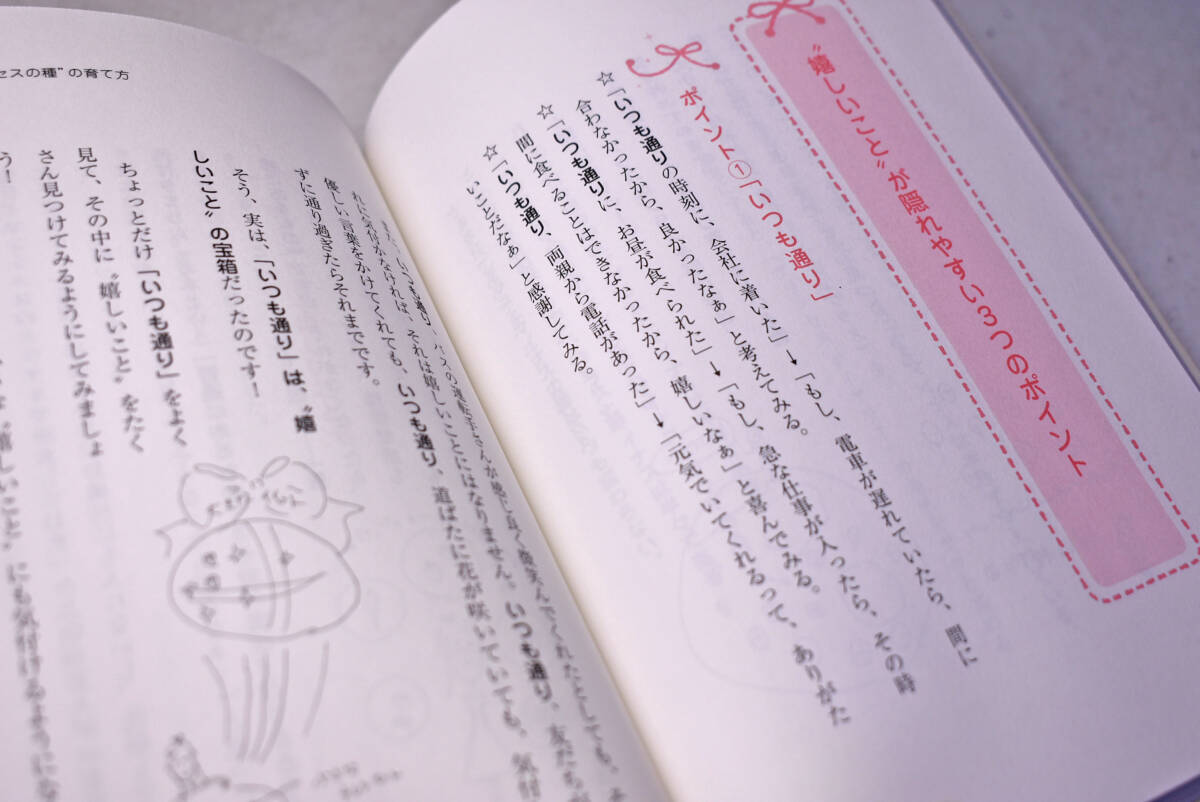 〝嬉しいこと〟が隠れやすい3つのポイント
ポイント①「いつも通り」
☆「いつも通りの時刻に、会社に着いた」→「もし、電車が遅れていたら、間に
合わなかったから、良かったなぁ」と考えてみる。
☆「いつも通りに、お昼が食べられた」→「もし、急な仕事が入ったら、その時
間に食べることはできなかったから、嬉しいなぁ」と喜んでみる。
☆「いつも通り、両親から電話があった」→「元気でいてくれるって、ありがた
いことだなぁ」と感謝してみる。
セスの種”の育て方
バスの運転手さんが感じ良く微笑んでくれたとしても、
れに気付かなければ、それは嬉しいことにはなりません。いつも通り、友だち
優しい言葉をかけてくれても、いつも通り、道ばたに花が咲いていても、気付
ずに通り過ぎたらそれまでです。
そう、実は、「いつも通り」は、〝嬉
しいこと〟の宝箱だったのです!
ちょっとだけ「いつも通り」をよく
見て、その中に〝嬉しいこと〟をたく
さん見つけてみるようにしてみましょ
う!
嬉しいこと〟にも気付けるようにな